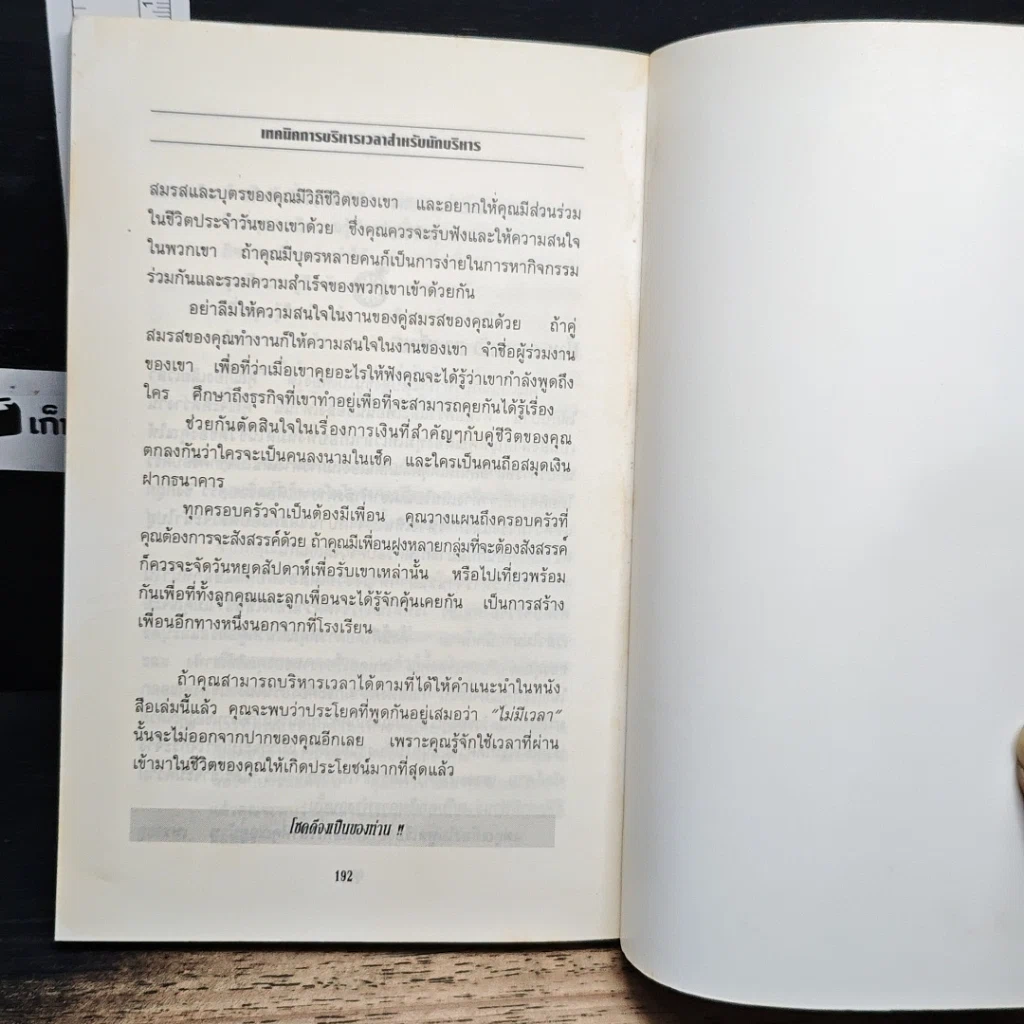 เทคนิคการบริหารเวลาสำหรับนักบริหาร
สมรสและบุตรของคุณมีวิถีชีวิตของเขา และอยากให้คุณมีส่วนร่วม
ในชีวิตประจำวันของเขาด้วย ซึ่งคุณควรจะรับฟังและให้ความสนใจ
ในพวกเขา ถ้าคุณมีบุตรหลายคนก็เป็นการง่ายในการหากิจกรรม
ร่วมกันและรวมความสำเร็จของพวกเขาเข้าด้วยกัน
อย่าลืมให้ความสนใจในงานของคู่สมรสของคุณด้วย ถ้าคู่
สมรสของคุณทำงานก็ให้ความสนใจในงานของเขา จำชื่อผู้ร่วมงาน
ของเขา เพื่อที่ว่าเมื่อเขาคุยอะไรให้ฟังคุณจะได้รู้ว่าเขากำลังพูดถึง
ใคร ศึกษาถึงธุรกิจที่เขาทำอยู่เพื่อที่จะสามารถคุยกันได้รู้เรื่อง
ช่วยกันตัดสินใจในเรื่องการเงินที่สำคัญๆกับคู่ชีวิตของคุณ
ตกลงกันว่าใครจะเป็นคนลงนามในเช็ค และใครเป็นคนถือสมุดเงิน
ฝากธนาคาร
ทุกครอบครัวจำเป็นต้องมีเพื่อน คุณวางแผนถึงครอบครัวที่
คุณต้องการจะสังสรรค์ด้วย ถ้าคุณมีเพื่อนฝูงหลายกลุ่มที่จะต้องสังสรรค์
ก็ควรจะจัดวันหยุดสัปดาห์เพื่อรับเขาเหล่านั้น หรือไปเที่ยวพร้อม
กันเพื่อที่ทั้งลูกคุณและลูกเพื่อนจะได้รู้จักคุ้นเคยกัน เป็นการสร้าง
เพื่อนอีกทางหนึ่งนอกจากที่โรงเรียน
ถ้าคุณสามารถบริหารเวลาได้ตามที่ได้ให้คำแนะนำในหนัง
สือเล่มนี้แล้ว คุณจะพบว่าประโยคที่พูดกันอยู่เสมอว่า “ไม่มีเวลา”
นั้นจะไม่ออกจากปากของคุณอีกเลย เพราะคุณรู้จักใช้เวลาที่ผ่าน
เข้ามาในชีวิตของคุณให้เกิดประโยชน์มากที่สุดแล้ว
โชคดีจงเป็นของท่าน !!
192